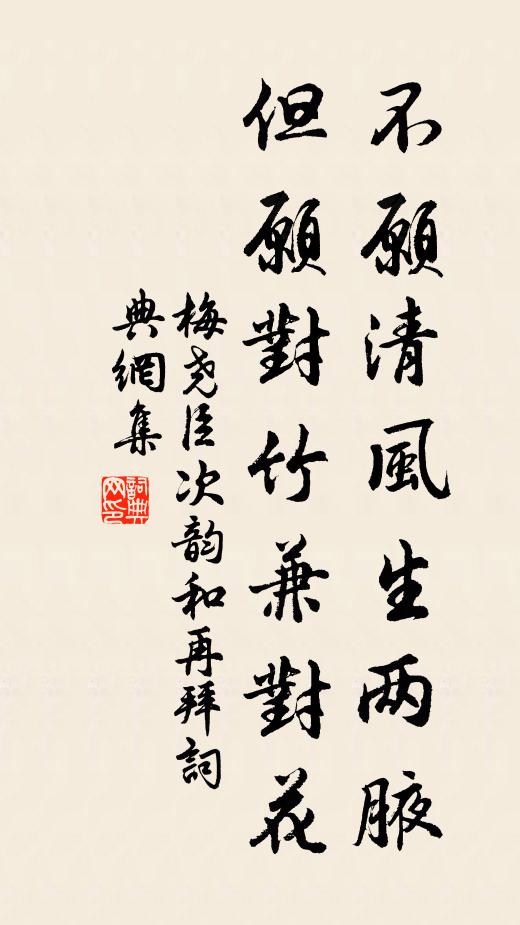 不願清風生两腋
但願對竹兼對花
梅尭臣次韵和再拜詞
典網集
詞典
网印